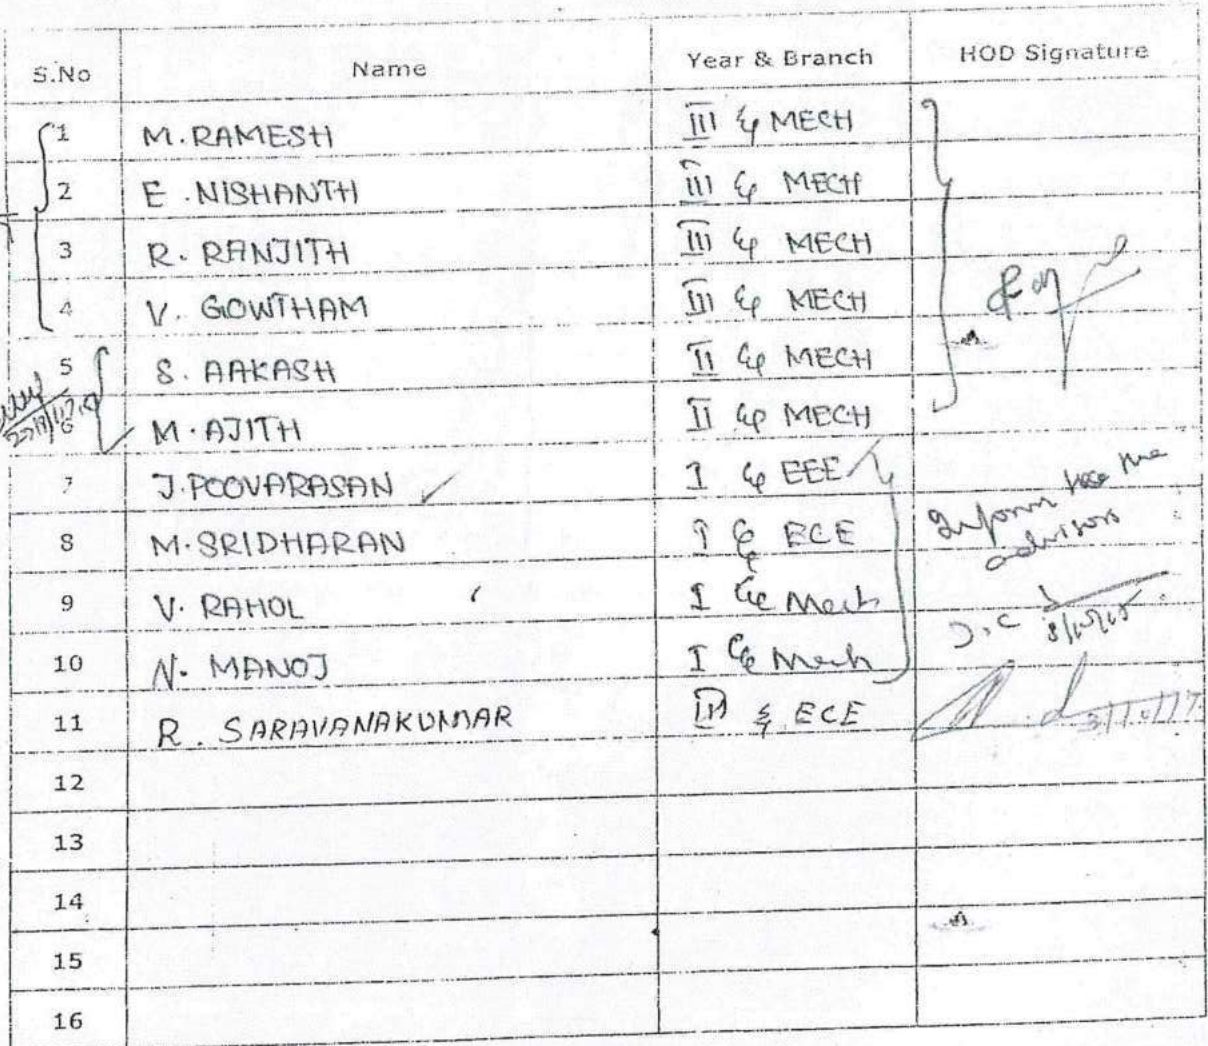 S.No Name Year & Branch HOD Signature
1 M. RAMESH III & MECH
2 E. NISHANTH III & MECH
3 R. RANJITH III & MECH
4 V. GOWTHAM III & MECH
5 S. AAKASH II & MECH
M. AJITH II & MECH
7 J. POOVARASAN I & EEE
Inform the
8 M. SRIDHARAN I & ECE
advisors
9 V. RAHOL I & Mech
10 N. MANOJ I & Mech
11 R. SARAVANAKUMAR III & ECE 3/10/17
12
13
14
15
16